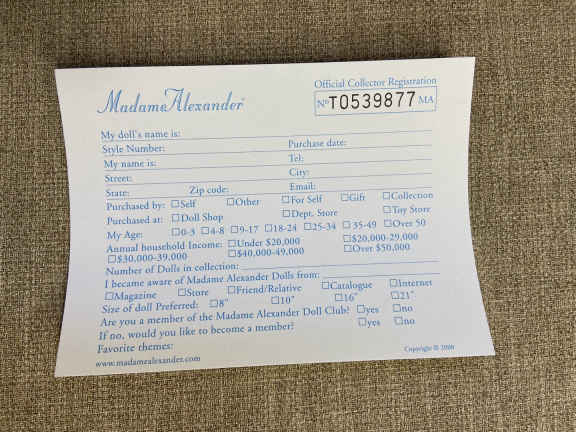 Madame Alexander®
Official Collector Registration
Nº T0539877 MA
My doll's name is:
Style Number: Purchase date:
My name is: Tel:
Street: City:
State: Zip code: Email:
Purchased by: ☐Self ☐Other ☐For Self ☐Gift ☐Collection
Purchased at: ☐Doll Shop ☐Dept. Store ☐Toy Store
My Age: ☐0-3 ☐4-8 ☐9-17 ☐18-24 ☐25-34 ☐35-49 ☐Over 50
Annual household Income: ☐Under $20,000 ☐$20,000-29,000
☐$30,000-39,000 ☐$40,000-49,000 ☐Over $50,000
Number of Dolls in collection:
I became aware of Madame Alexander Dolls from:
☐Magazine ☐Store ☐Friend/Relative ☐Catalogue ☐Internet
Size of doll Preferred: ☐8" ☐10" ☐16" ☐21"
Are you a member of the Madame Alexander Doll Club? ☐yes ☐no
If no, would you like to become a member? ☐yes ☐no
Favorite themes:
www.madamealexander.com
Copyright ©